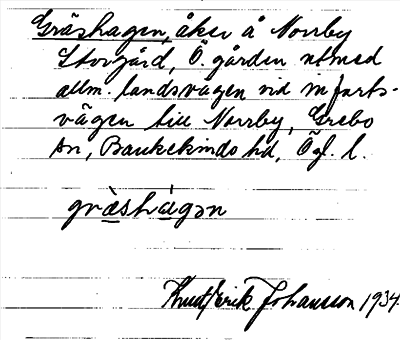 Gräshagen, åker å Norrby
Storgård, Ö. gården utmed
allm. landsvägen vid infarts-
vägen till Norrby, Grebo
sn, Bankekinds hd, Ögl. l.
gràshàgən
Knut Erik Johansson 1934.